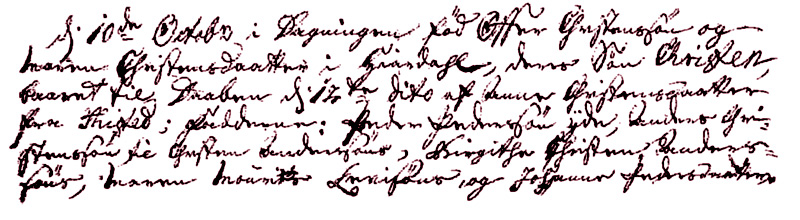 d. 10de Octobr i Dagningen fød Offer Christensøn og
Maren Christensdaatter i Hiardahl, deres Søn Christen,
baaret til Daaben d. 12te dito af Anne Christensdaatter
fra Thisted; Fadderne: Peder Pedersøn ibde, Anders Chri-
stensøn, Christen Andersøns, Birgithe Christen Anders-
søns, Maren Mouritz Levisøns, og Johanne Pedersdaatter